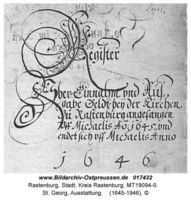 Register
Über Einnahmb und Auß,
gabe Geldt bey der Kirchen
zu Rastenburg angefangen
Uff Michaelis Ao: 1645 und
endet sich uff Michaelis Anno
1646
www.Bildarchiv-Ostpreussen.de 017432
Rastenburg, Stadt, Kreis Rastenburg, MT19094-0.
St. Georg, Ausstattung. (1645-1946), ©